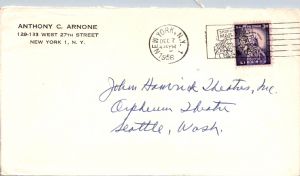 ANTHONY C. ARNONE
129-133 WEST 27TH STREET
NEW YORK 1, N. Y.
NEW YORK, N.Y.
DEC 7
1956
John Hamrick Theatres, Inc.
Orpheum Theatre
Seattle, Wash.